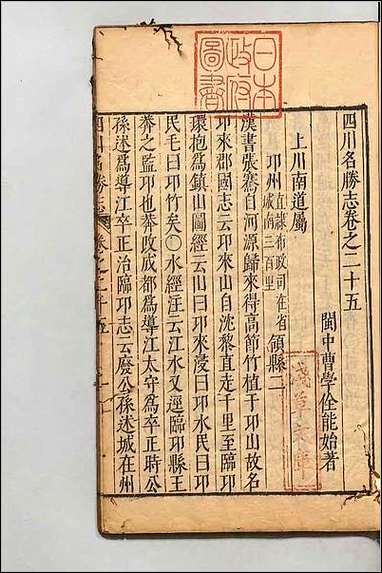 四川名勝志卷之二十五
閩中曹學佺能始著
上川南道屬
邛州直隸布政司在省城南三百里領縣二
漢書張騫自河源歸來得高節竹植于邛山故名
邛來郡國志云邛來山自沈黎直走千里至臨邛
環抱爲鎮山圖經云山曰邛來浸曰邛水民曰邛
民毛曰邛竹矣○水經注云江水又逕臨邛縣王
莽之監邛也莽改成都爲導江太守爲卒正時公
孫述爲導江卒正治臨邛志云廢公孫述城在州
四川名勝志
卷之二十五
一
日本政府圖書
淺草文庫